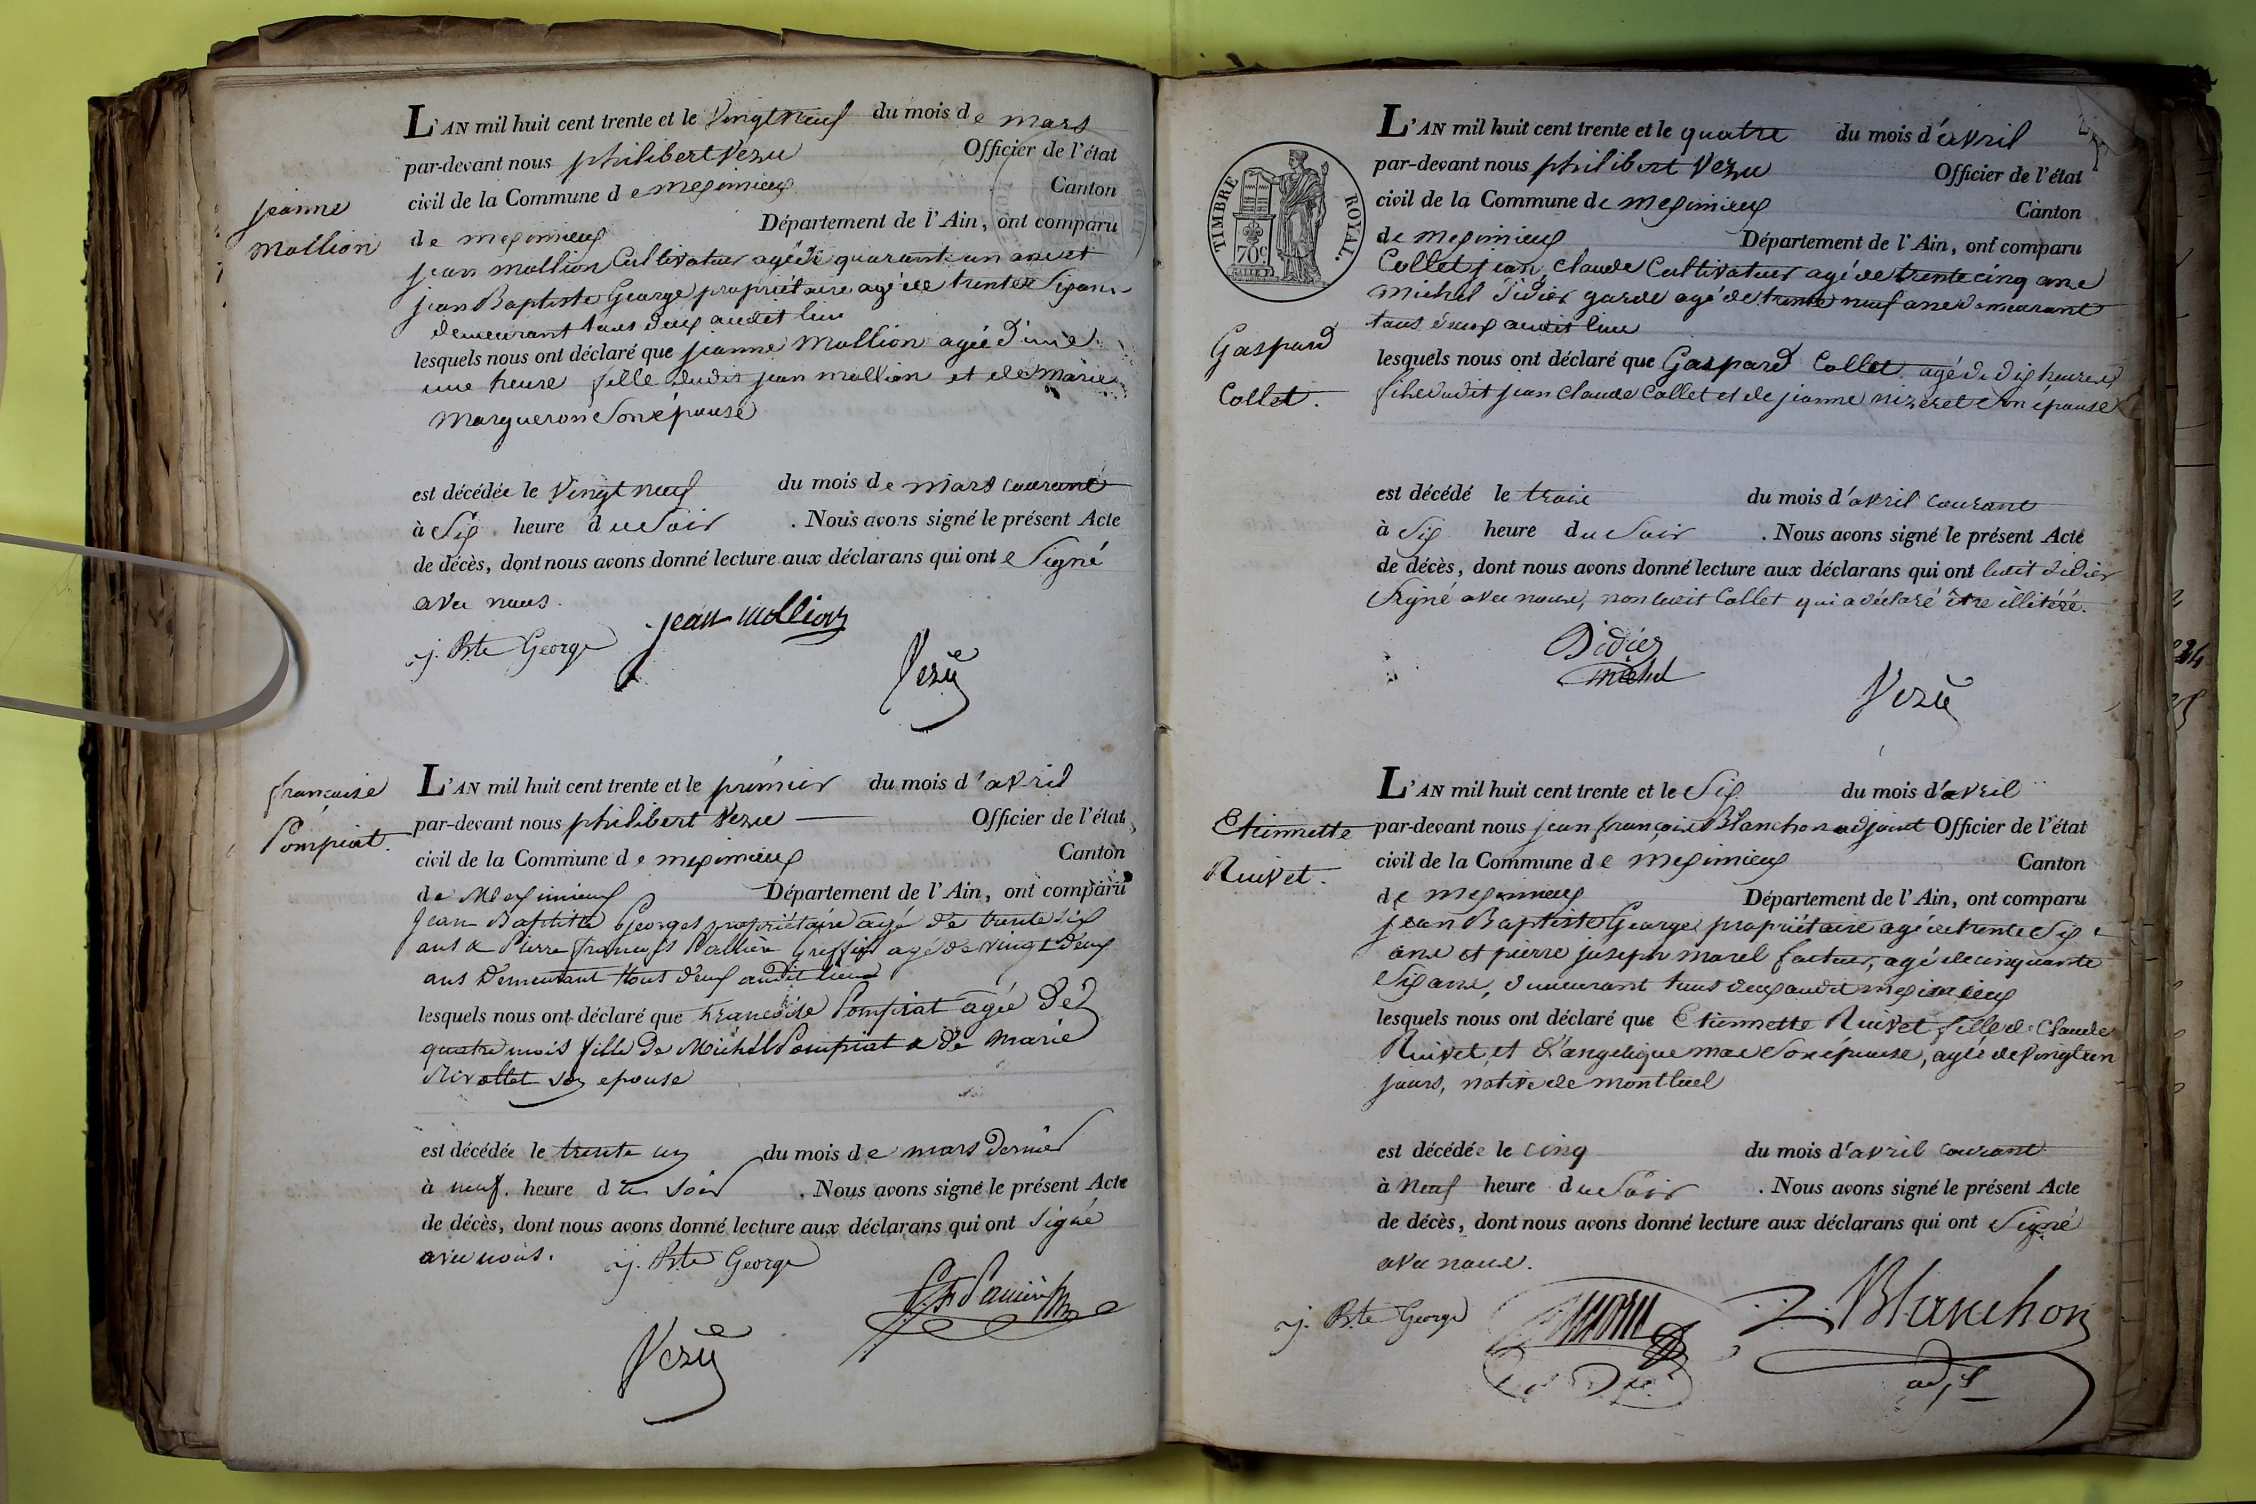 jeanne
mollion
L'AN mil huit cent trente et le vingt neuf du mois de mars
par-devant nous philibert Vezu Officier de l'état
civil de la Commune de meximieux Canton
de meximieux Département de l'Ain, ont comparu
jean mollion Cultivateur agé de quarante un ans et
jean Baptiste George propriétaire agé de trente Six ans
demeurant tous deux audit lieu
lesquels nous ont déclaré que jeanne mollion agée d'une
une heure fille dudit jean mollion et de marie
margueron Son épouse
est décédée le vingt neuf du mois de mars courant
à Six heure du Soir . Nous avons signé le présent Acte
de décès, dont nous avons donné lecture aux déclarans qui ont Signé
avec nous.
j. Bte George
jean mollion
Vezu
francoise
Pompiat.
L'AN mil huit cent trente et le premier du mois d'avril
par-devant nous philibert Vezu Officier de l'état
civil de la Commune de meximieux Canton
de Meximieux Département de l'Ain, ont comparu
Jean Baptiste Georges propriétaire agé de trente six
ans & Pierre françois Greffier agé de vingt deux
ans Demeurant tous deux audit lieu
lesquels nous ont déclaré que francoise Pompiat agée de
quatre mois fille de Michel Pompiat & de marie
Rivollet son epouse
est décédée le trente un du mois de mars Dernier
à neuf. heure du Soir . Nous avons signé le présent Acte
de décès, dont nous avons donné lecture aux déclarans qui ont signé
avec nous.
j. Bte George
Vezu
TIMBRE ROYAL.
70c
Gaspard
Collet.
L'AN mil huit cent trente et le quatre du mois d'avril
par-devant nous philibert Vezu Officier de l'état
civil de la Commune de meximieux Canton
de meximieux Département de l'Ain, ont comparu
Collet jean, claude Cultivateur agé de trente cinq ans
michel Didier garde agé de trente neuf ans demeurant
tous deux audit lieu
lesquels nous ont déclaré que Gaspard Collet agé de dix heures
fils dudit jean claude Collet et de jeanne nizeret Son épouse
est décédé le trois du mois d'avril courant
à Six heure du Soir . Nous avons signé le présent Acte
de décès, dont nous avons donné lecture aux déclarans qui ont ledit didier
Signé avec nous, non ledit Collet qui a déclaré être illitéré.
Didier
michel
Vezu
Etiennette
Ruivet.
L'AN mil huit cent trente et le Six du mois d'avril
par-devant nous jean françois Blanchon adjoint Officier de l'état
civil de la Commune de meximieux Canton
de meximieux Département de l'Ain, ont comparu
jean Baptiste George propriétaire agé de trente Six
ans et pierre joseph morel facteur, agé de cinquante
Six ans, demeurant tous deux audit meximieux
lesquels nous ont déclaré que Etiennette Ruivet fille de Claude
Ruivet, et d'angelique Son épouse, agée de vingt un
jours, native de montluel
est décédée le cinq du mois d'avril courant
à Neuf heure du Soir . Nous avons signé le présent Acte
de décès, dont nous avons donné lecture aux déclarans qui ont Signé
avec nous.
j. Bte George
Blanchon
adjt